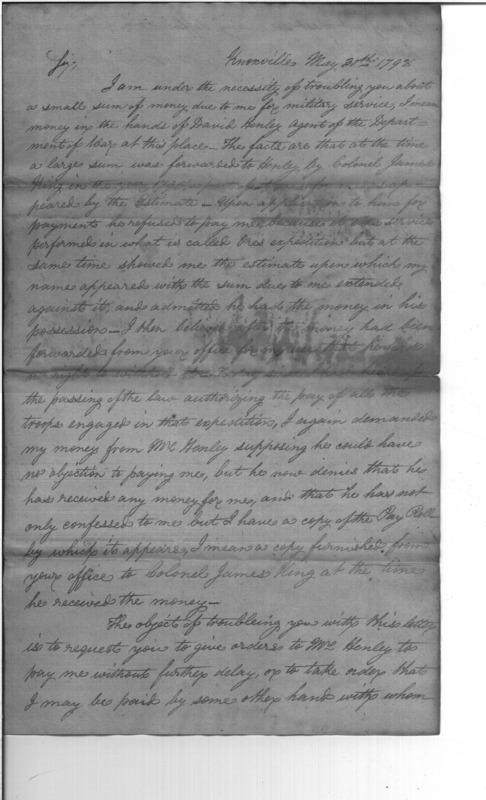 Sir, Knoxville May 20th 1798
I am under the necessity of troubling you about
a small sum of money due to me for military service, I mean
money in the hands of David Henley Agent of the Depart=
ment of War at this place — The facts are that at the time
a large sum was forwarded to Henley by Colonel James
King in the year ap-
peared by the Estimate — Upon application to him for
payment he refused to pay me because it was service
performed in what is called expedition but at the
same time showed me the estimate upon which my
name appeared with the sum due to me extended
against it, and admitted he had the money in his
possession — I then the money had been
forwarded from your office for my use
no right to withhold
the passing of the law authorizing the pay of all the
troops engaged in that expedition, I again demanded
my money from Mr. Henley supposing he could have
no objection to paying me, but he now denies that he
has received any money for me, and that he has not
only confessed to me but I have a copy of the Pay Roll
by which it appears, I mean a copy furnished from
your office to Colonel James King at the time
he received the money —
The object of troubleing you with this letter
is to request you to give orders to Mr. Henley to
pay me without further delay, or to take order that
I may be paid by some other hand with whom